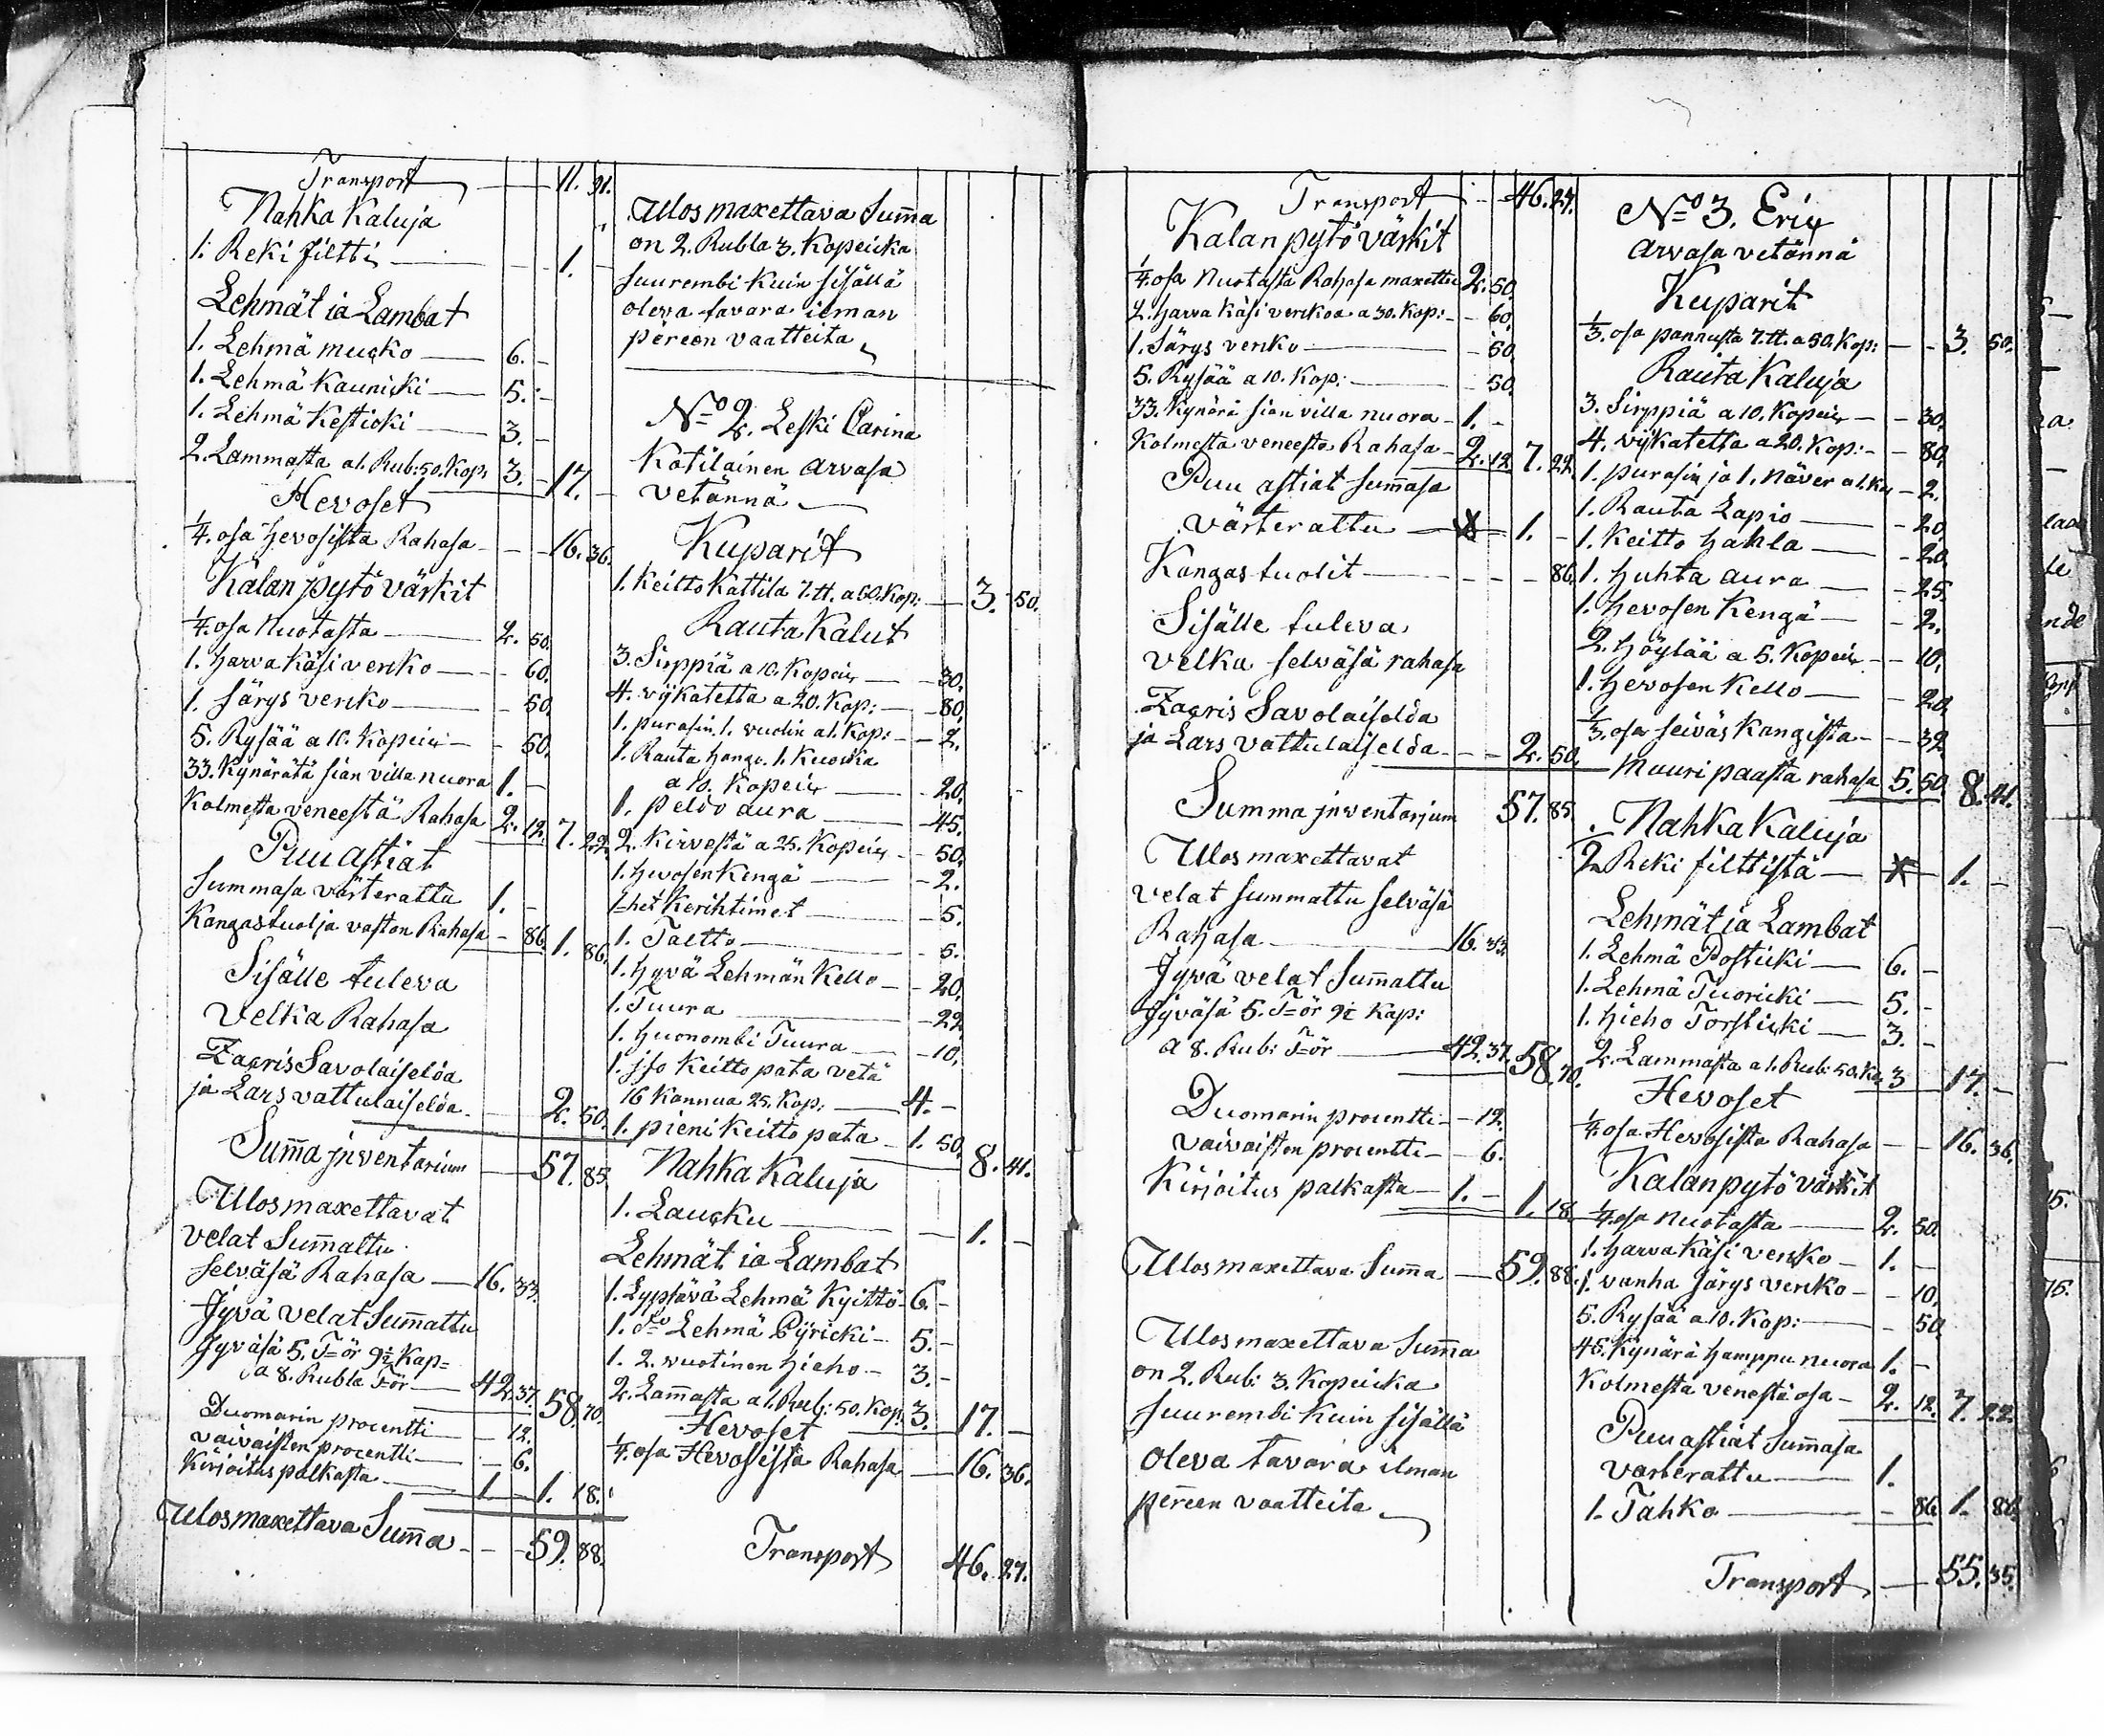 Transport — 11. 91.
Nahka Kaluja
1. Reki filtti — 1. –
Lehmät ia Lambat
1. Lehmä mucko — 6. –
1. Lehmä Kaunicki — 5. –
1. Lehmä Kesticki — 3. –
2. Lammasta a 1. Rub: 50. Kop: 3. – 17. –
Hevoset
1/4. osa hevosista Rahasa — 16. 36.
Kalan pytö värkit
1/4. osa Nuotasta — 2. 50.
1. harva Käsi vercko — 60.
1. Särys vercko — 50.
5. Rysää a 10. Kopeick — 50.
33. Kynärätä sian villa nuora 1. –
Kolmesta veneestä Rahasa 2. 12. 7. 22.
Puu astiat
Summasa värterattu 1. –
Kangastuolja vaston Rahasa – 86. 1. 86.
Sisälle tuleva
Velka Rahasa
Zacris Savolaiselda
ja Lars vattulaiselda — 2. 50.
Sum̄a jnventarium — 57. 85.
Ulosmaxettavat
velat Sum̄attu
selväsä Rahasa — 16. 33.
Jyvä velat Sum̄attu
Jyväsä 5. T=ör 9½ Kap=
a 8. Rubla T=ör — 42. 37. 58. 70.
Duomarin procentti — 12.
vaivaisten procentti — 6.
Kirjoitus palkasta — 1 – 1. 18.
Ulosmaxettava Sum̄a — 59. 88.
Ulosmaxettava Sum̄a
on 2. Rubla 3. Kopeicka
suurembi Kuin sisällä
oleva tavara ilman
pereen vaatteita
No 2. Leski Carina
Kotilainen arvasa
vetännä
Kuparit
1. Keitto Kattila 7. tt. a 50. Kop: — 3. 50.
Rauta Kalut
3. Sirppiä a 10. Kopeick — 30.
4. vijkatetta a 20. Kop: — 80.
1. purasin, 1. vuolin a 1. Kop: — 2.
1. Rauta hango. 1. Kuocka
a 10. Kopeick — 20.
1. peldo aura — 45.
2. Kirvestä a 25. Kopeick — 50.
1. hevosen Kengä — 2.
1=het Kerihtimet — 5.
1. Taltto — 5.
1. hyvä Lehmän Kello — 20.
1. Tuura — 22.
1. huonombi Tuura — 10.
1. jso Keitto pata vetä
16 Kannua 25. Kop: — 4. –
1. pieni Keitto pata — 1. 50. 8. 41.
Nahka Kaluja
1. Laucku — 1. –
Lehmät ia Lambat
1. Lypsävä Lehmä Kyittö — 6. –
1. do Lehmä Pyricki — 5. –
1. 2. vuotinen hieho — 3. –
2. Lam̄asta a 1. Rub: 50. Kop. 3. 17. –
Hevoset
1/4. osa Hevosista Rahasa — 16. 36.
Transport 46. 27.
Transport — 46. 27.
Kalan pytö värkit
1/4. osa Nuotasta Rahasa maxettu 2. 50.
2. harva Käsi verckoa a 30. Kop: — 60.
1. Särys vercko — 50.
5. Rysää a 10. Kop: — 50.
33. Kynärä sian villa nuora — 1. –
Kolmesta veneesta Rahasa — 2. 12. 7. 22.
Puu astiat sum̄asa
värterattu — 1. –
Kangastuolit — 86.
Sisälle tuleva
velka selväsä rahasa
Zacris Savolaiselda
ja Lars vattulaiselda — 2. 50.
Summa jnventarjum 57. 85.
Ulosmaxettavat
velat summattu selväsä
Rahasa — 16. 33.
Jyvä velat Sum̄attu
Jyväsä 5. T=ör 9½ Kap:
a 8. Rub: T=ör — 42. 37. 58. 70.
Duomarin procentti — 12.
vaivaisten procentti — 6.
Kirjoitus palkasta — 1. – 1. 18.
Ulosmaxettava Sum̄a — 59. 88.
Ulosmaxettava Sum̄a
on 2. Rub: 3. Kopeicka
suurembi Kuin sisällä
oleva tavara ilman
pereen vaatteita
No 3. Erick
arvasa vetännä
Kuparit
1/3. osa pannusta 7. tt. a 50. Kop: — 3. 50.
Rauta Kaluja
3. Sirppiä a 10. Kopeick — 30.
4. vijkatetta a 20. Kop: — 80.
1. purasin ja 1. Näver a 1. Kop — 2.
1. Rauta Lapio — 20.
1. Keitto hahla — 20.
1. huhta aura — 25.
1. hevosen Kengä — 2.
2. höylää a 5. Kopeick — 10.
1. hevosen Kello — 20.
1/3. osa seiväs Kangista — 32.
Muuri paasta rahasa 5. 50. 8. 41.
Nahka Kaluja
½ Reki filttistä — 1. –
Lehmät ja Lambat
1. Lehmä Posticki — 6. –
1. Lehmä Tuoricki — 5. –
1. hieho Torsticki — 3. –
2. Lammasta a 1. Rub: 50. Ko. 3 17. –
Hevoset
1/4. osa Hevosista Rahasa — 16. 36.
Kalan pytö värkit
1/4. osa Nuotasta — 2. 50.
1. harva Käsi vercko — 1. –
1. vanha Särys vercko — 10.
5. Rysää a 10. Kop: — 50.
45. Kynärä hamppu nuora 1. –
Kolmesta venestä osa — 2. 12. 7. 22.
Puu astiat Sum̄asa
varterattu — 1.
1. Tahko — 86. 1. 86.
Transport — 55. 35.